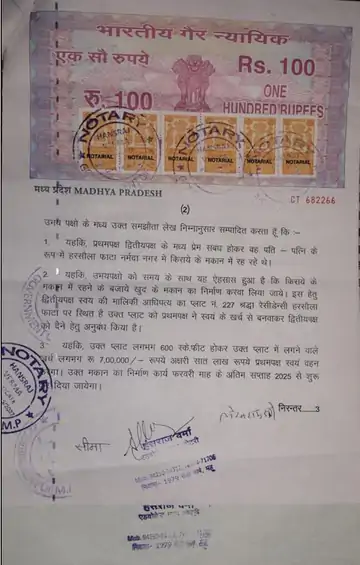 भारतीय गैर न्यायिक
एक सौ रुपये
Rs. 100
रु. 100
ONE
HUNDRED RUPEES
NOTARY
HANSRAJ
NOTARIAL NOTARIAL NOTARIAL NOTARIAL NOTARIAL NOTARIAL
मध्य प्रदेश MADHYA PRADESH
CT 682266
(2)
उभय पक्षो के मध्य उक्त समझौता लेख निम्नानुसार सम्पादित करता हूँ कि :-
1. यहकि, प्रथमपक्ष द्वितीयपक्ष के मध्य प्रेम संबध होकर वह पति - पत्नि के
रूप में हरसौला फाटा नर्मदा नगर में किराये के मकान में रह रहे थे।
2. यहकि, उभयपक्षो को समय के साथ यह ऐहसास हुआ है कि किराये के
मकान में रहने के बजाये खुद के मकान का निर्माण करवा लिया जाये। इस हेतु
द्वितीयपक्ष स्वय की मालिकी आधिपत्य का प्लाट न. 227 श्रद्धा रेसीडेन्सी हरसौला
फाटा पर स्थित है उक्त प्लाट को प्रथमपक्ष ने स्वय के खर्च से बनवाकर द्वितीयपक्ष
को देने हेतु अनुबंध किया है।
3. यहकि, उक्त प्लाट लगभग 600 स्के.फीट होकर उक्त प्लाट में लगने वाले
खर्च लगभग रू 7,00,000/- रूपये अक्षरी सात लाख रूपये प्रथमपक्ष स्वयं वहन
उक्त मकान का निर्माण कार्य फरवरी माह के अंतिम सप्ताह 2025 से शुरू
दिया जायेगा।
निरन्तर...3
सीमा
हसराज वर्मा
NOTARY
HANSRAJ
VERMA
M.P
हसराज वर्मा